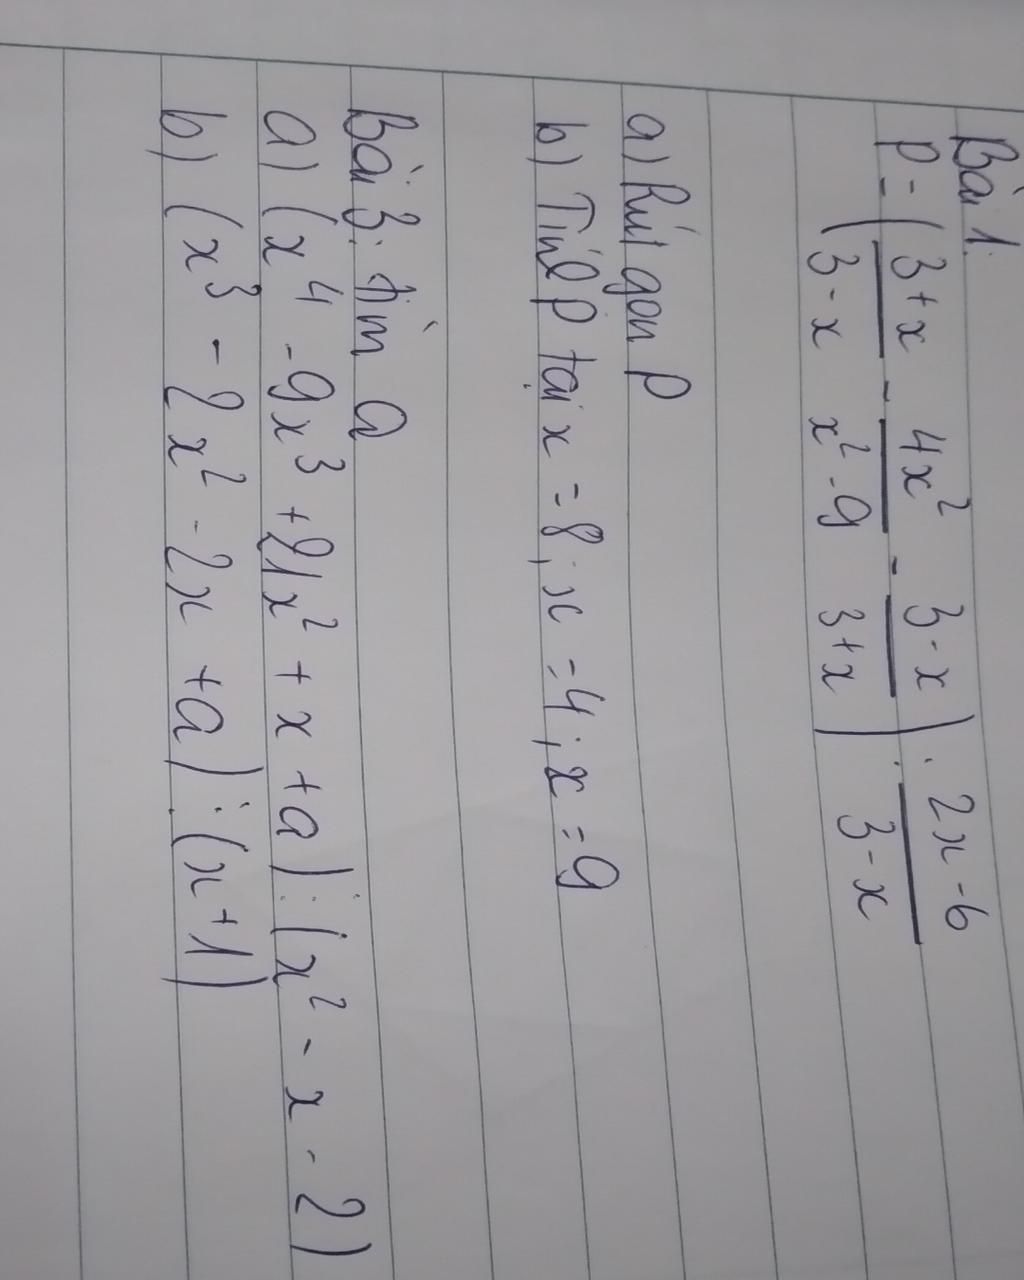 Bài 1.
P = ( 3+x / 3-x - 4x² / x²-9 - 3-x / 3+x ) : 2x-6 / 3-x
a) Rút gọn P
b) Tính P tại x = 8 ; x = 4 ; x = 9
Bài 3. tìm a
a) (x⁴ - 9x³ + 21x² + x + a) : (x² - x - 2)
b) (x³ - 2x² - 2x + a) : (x + 1)